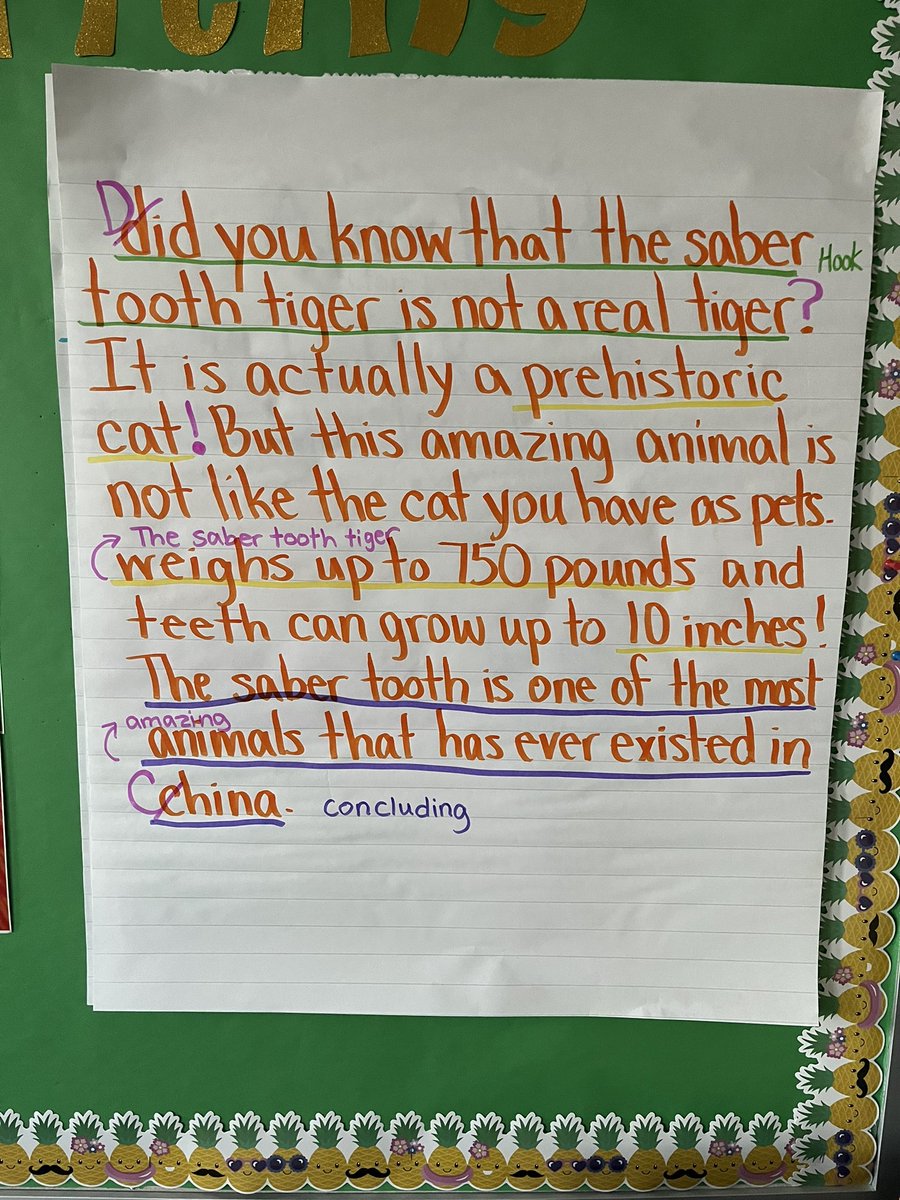 Did you know that the saber Hook
tooth tiger is not a real tiger?
It is actually a prehistoric
cat! But this amazing animal is
not like the cat you have as pets.
The saber tooth tiger
weighs up to 750 pounds and
teeth can grow up to 10 inches!
The saber tooth is one of the most
amazing
animals that has ever existed in
China. concluding